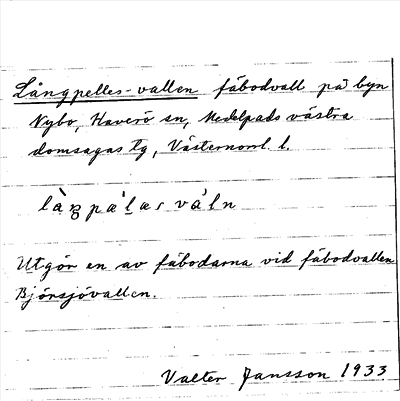 Långpelles-vallen fäbodvall på byn
Nybo, Haverö sn, Medelpads västra
domsagas tg, Västernorrl. l.
Utgör en av fäbodarna vid fäbodvallen
Björsjövallen.
Valter Jansson 1933